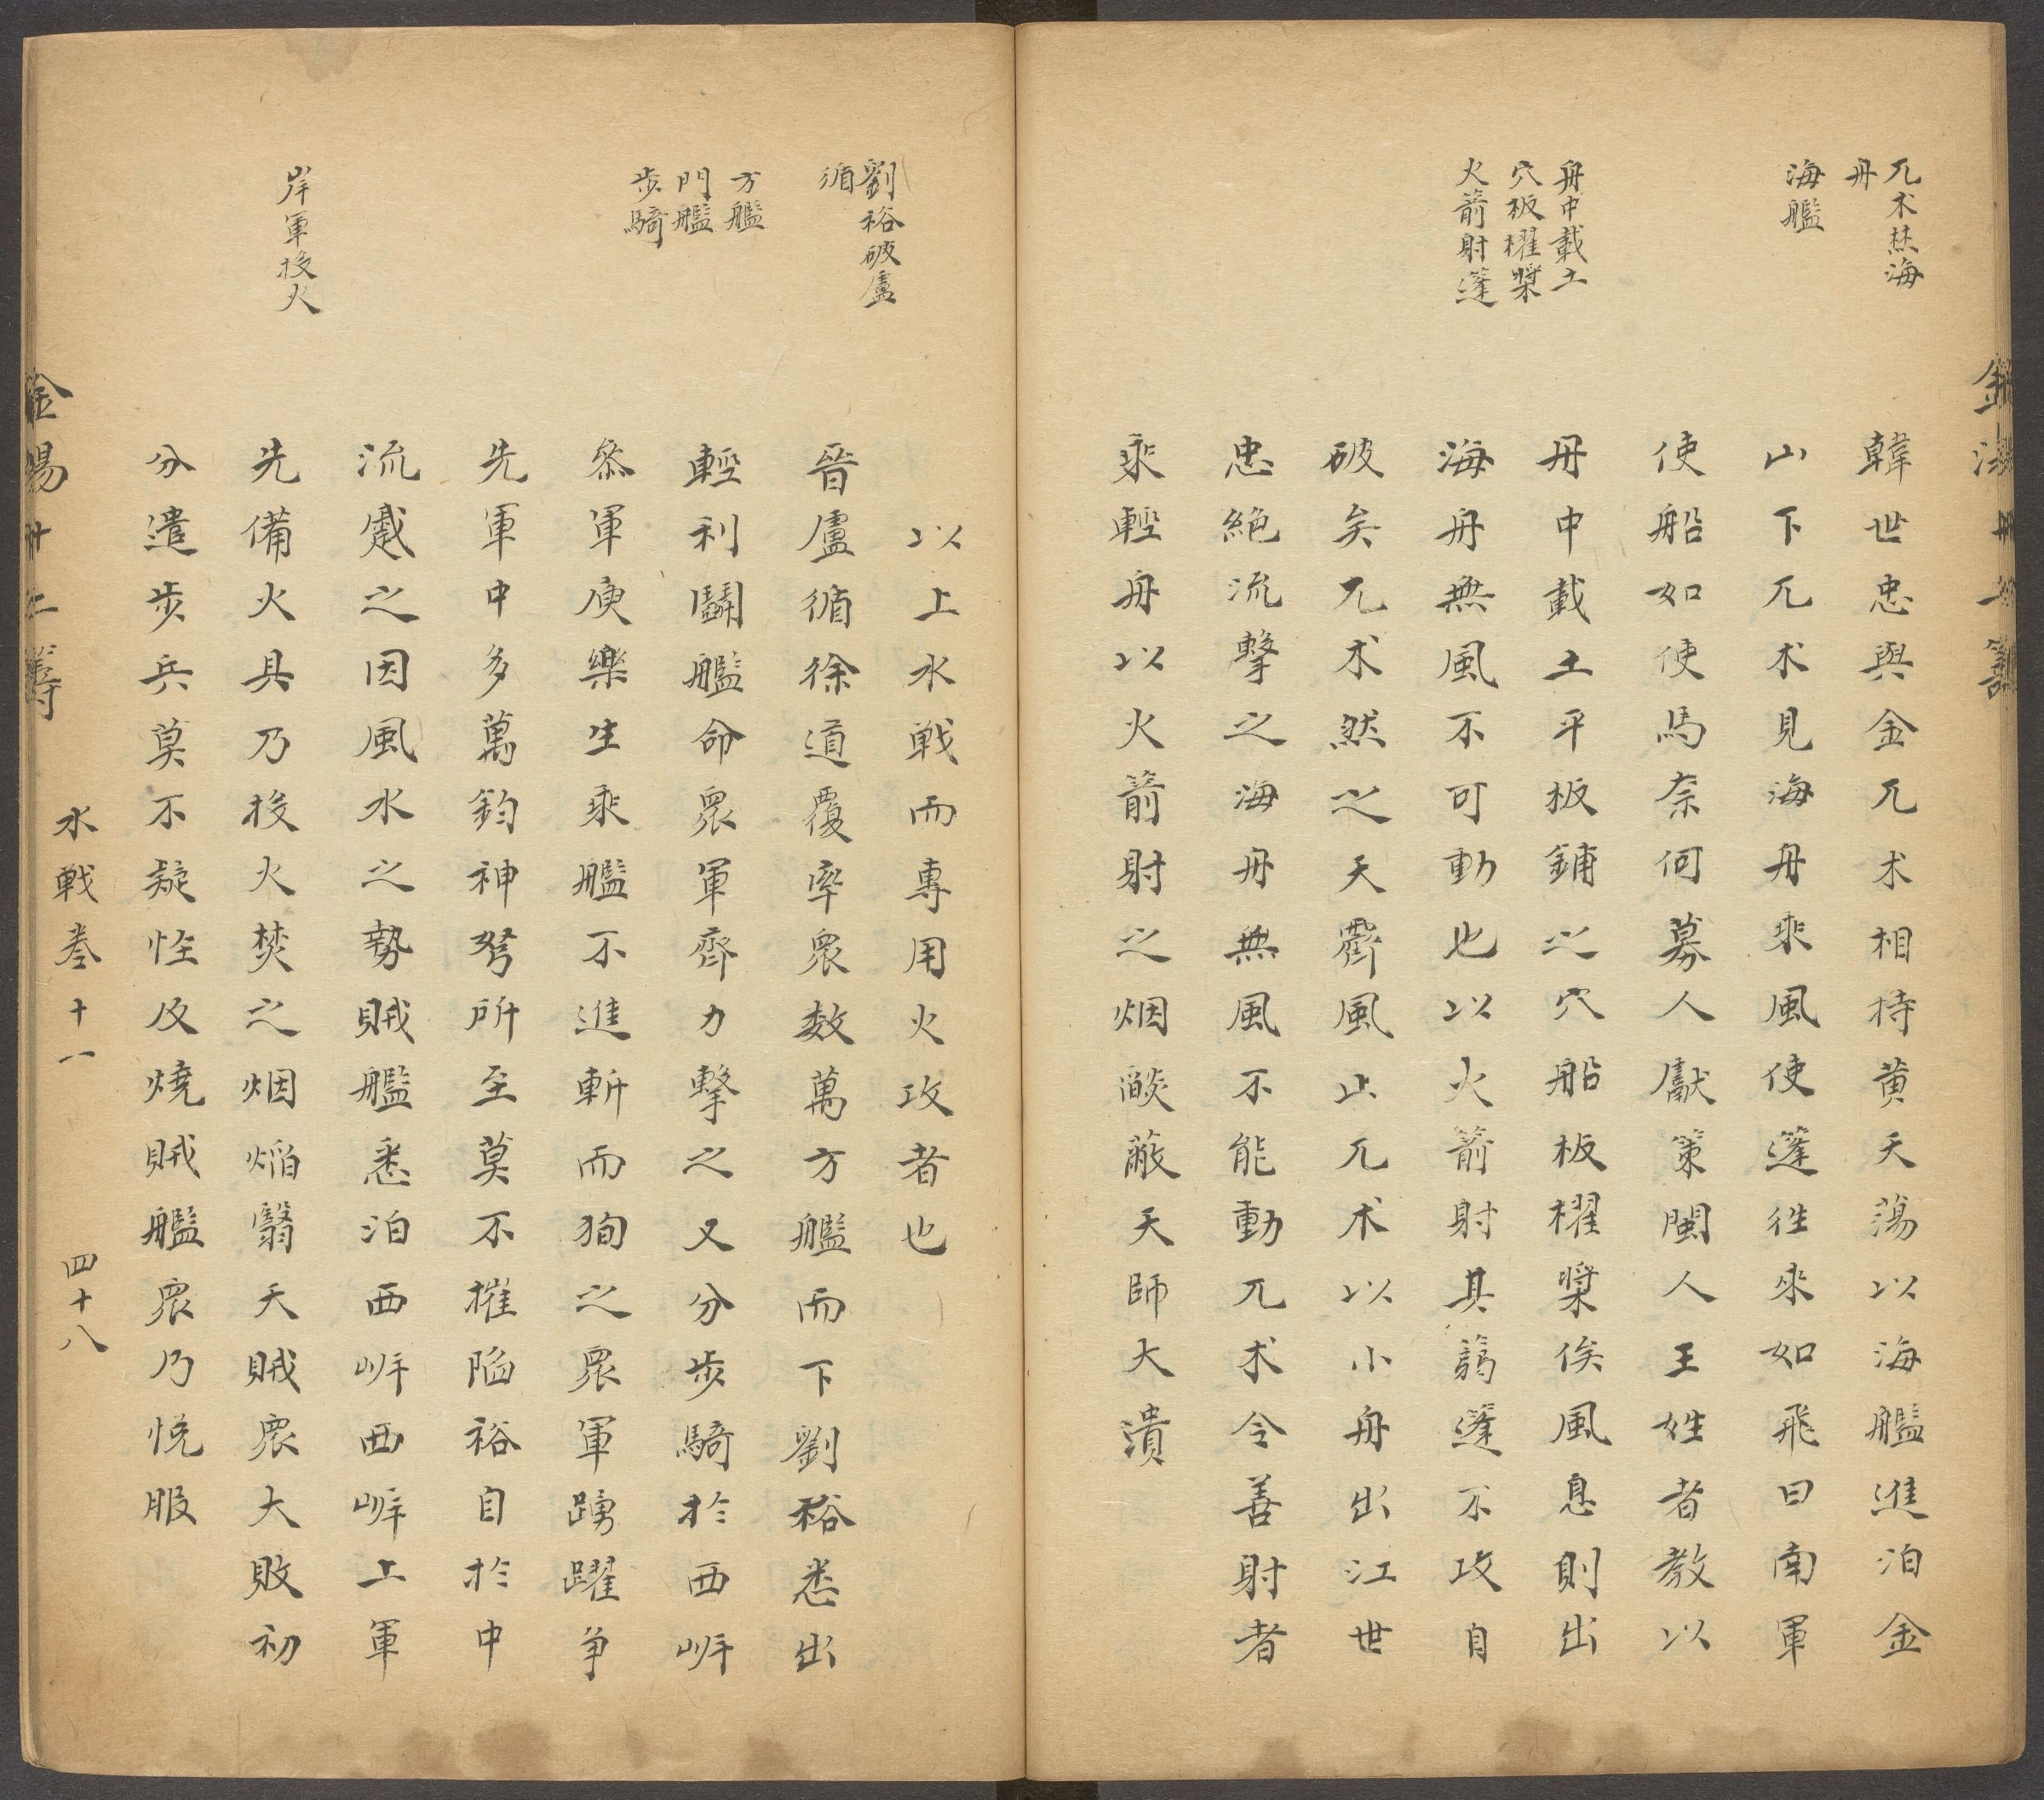 兀术焚海
舟
海艦
舟中載土
穴板櫂槳
火箭射篷
韓世忠與金兀术相持黃天蕩以海艦進泊金
山下兀术見海舟乘風使篷徃來如飛曰南軍
使船如使馬奈何募人獻策閩人王姓者教以
舟中載土平板鋪之穴船板櫂槳俟風息則出
海舟無風不可動也以火箭射其篛篷不攻自
破矣兀术然之天霽風止兀术以小舟出江世
忠絶流擊之海舟無風不能動兀术令善射者
乘輕舟以火箭射之烟燄蔽天師大潰
劉裕破盧
循
方艦
鬥艦
步騎
岸軍投火
以上水戦而專用火攻者也
晉盧循徐道覆率衆数萬方艦而下劉裕悉出
輕利鬭艦命衆軍齊力擊之又分步騎於西岸
叅軍庾樂生乘艦不進斬而狥之衆軍踴躍争
先軍中多萬鈞神弩所至莫不摧陷裕自於中
流蹙之因風水之勢賊艦悉泊西岸西岸上軍
先備火具乃投火焚之烟焰翳天賊衆大敗初
分遣步兵莫不疑恠及燒賊艦衆乃悅服
金湯卅二籌
水戦卷十一
四十八